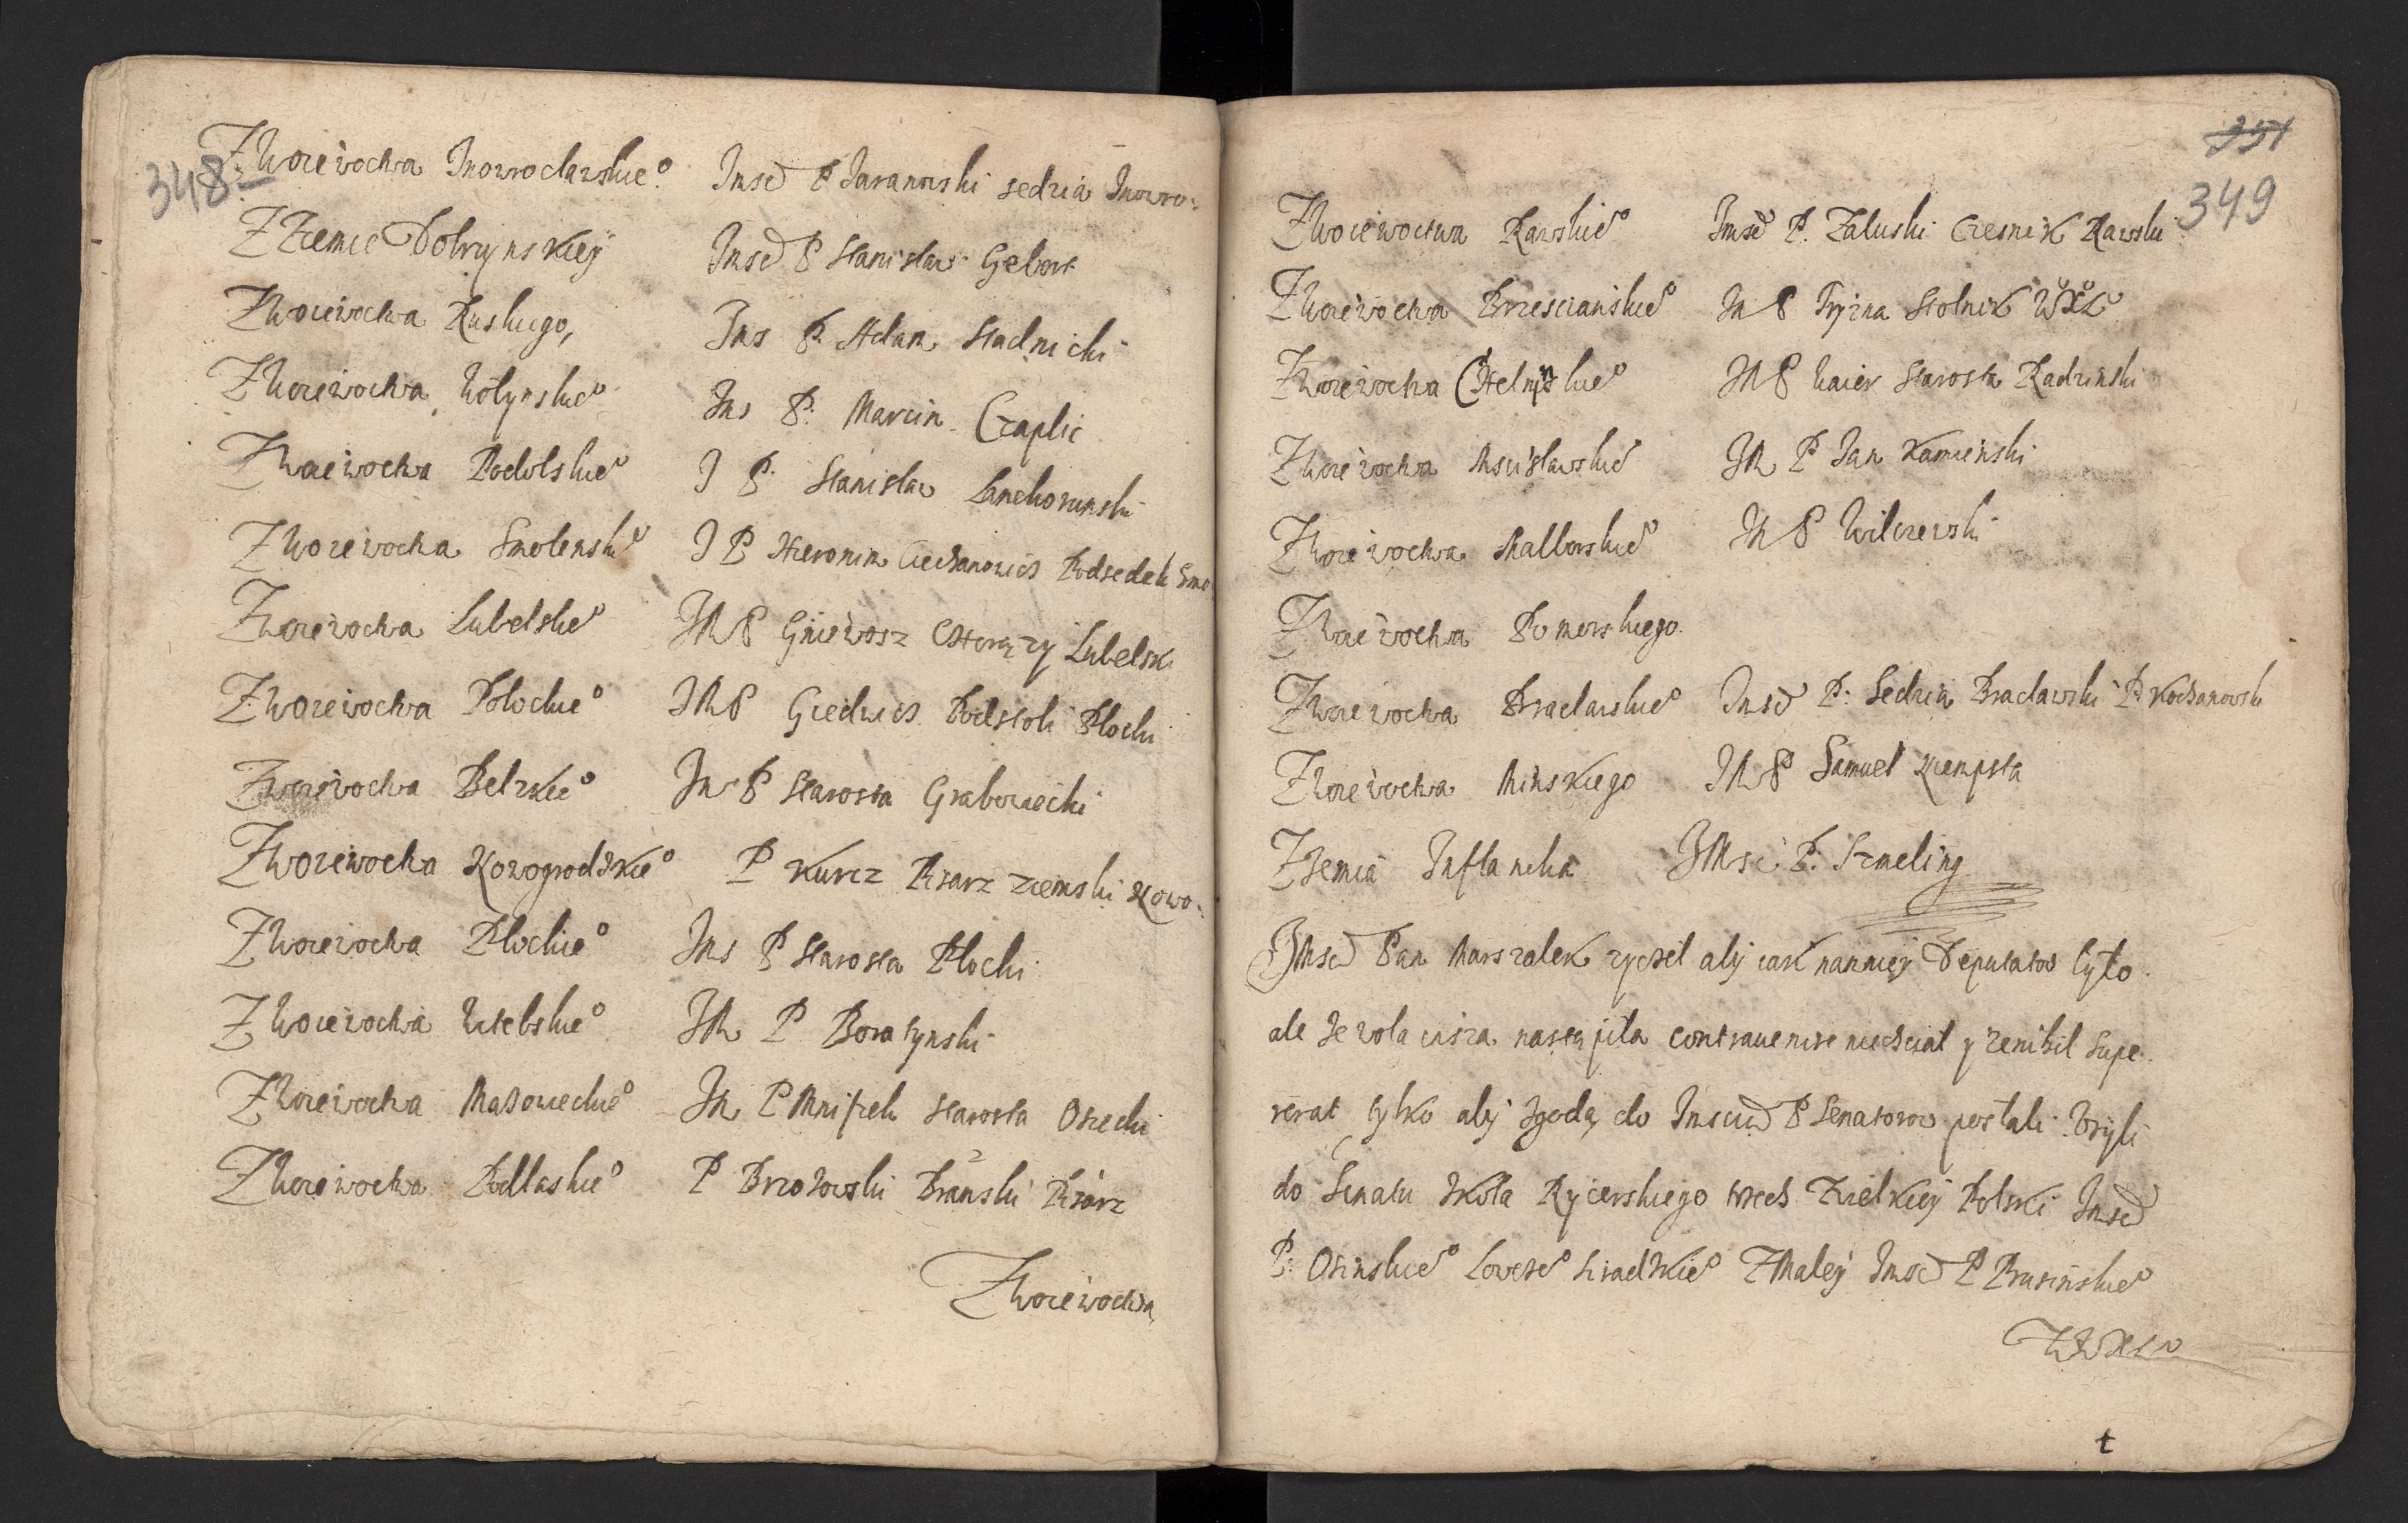 348
Z Woiewoctwa Inowrocławskie° Jmsć P Jaranowski sedzia Inowro:
Z Ziemie Dobrzynskiey Jmsć P Stanisław Gebort
Z Woiewoctwa Ruskiego, Jms P. Adam Stadnicki
Z Woiewoctwa Wołynskie° Jms P: Marcin Czaplic
Z Woiewoctwa Podolskie° J P: Stanisław Lanckorunski
Z Woiewoctwa Smolenskie° J P Hieronim Ciechanowicz Podsedek Smo
Z Woiewoctwa Lubelskie° JM P Gniewosz Chorązy Lubelski
Z Woiewoctwa Połockie° JM P Giedroic Podstoli Płocki
Z Woiewoctwa Belzkie° Jm P Starosta Grabowiecki
Z Woiewoctwa Nowogrodzkie° P Kurcz Pisarz ziemski Nowo:
Z Woiewoctwa Płockie° Jms P Starosta Płocki
Z Woiewoctwa Witebskie° JM P Boratynski
Z Woiewoctwa Mazowieckie° Jm P Mniszek Starosta Osiecki
Z Woiewoctwa Podlaskie° P Brzozowski Branski Pisarz
Z Woiewoctwa
351
349
Z Woiewoctwa Rawskie° Jmsć P. Załuski Czesnik Rawski
Z Woiewoctwa Brzescianskie° Jm P Tryzna Stolnik WXL°
Z Woiewoctwa Chelminskie° JM P Waier Starosta Radzinski
Z Woiewoctwa Mscisławskie° JM P Jan Kamienski
Z Woiewoctwa Malborskie° JM P Wilczewski
Z Woiewoctwa Pomorskiego.
Z Woiewoctwa Bracławskie° Jmsć P: Sedzia Bracławski P. Kochanowski
Z Woiewoctwa Minskiego JM P Samuel Kiempsta
Z Ziemia Inflancka JMsć P. Szmeling
JMsć Pan Marszalek zyczel aby iak namniey Deputatow było
ale ze wola insza nastąpiła contravenire niechciał y ze nihil supe
rerat tylko aby zgodą do Jmsciw P Senatorow posłali. Wzyli
do Senatu z koła Rycerskiego trzech z Wielkiey Polski Jmsć
P: Osinskie° Łowcze° Siradzkie° Z Małey Jmsć P Prusinskie°
Z WXL°
t